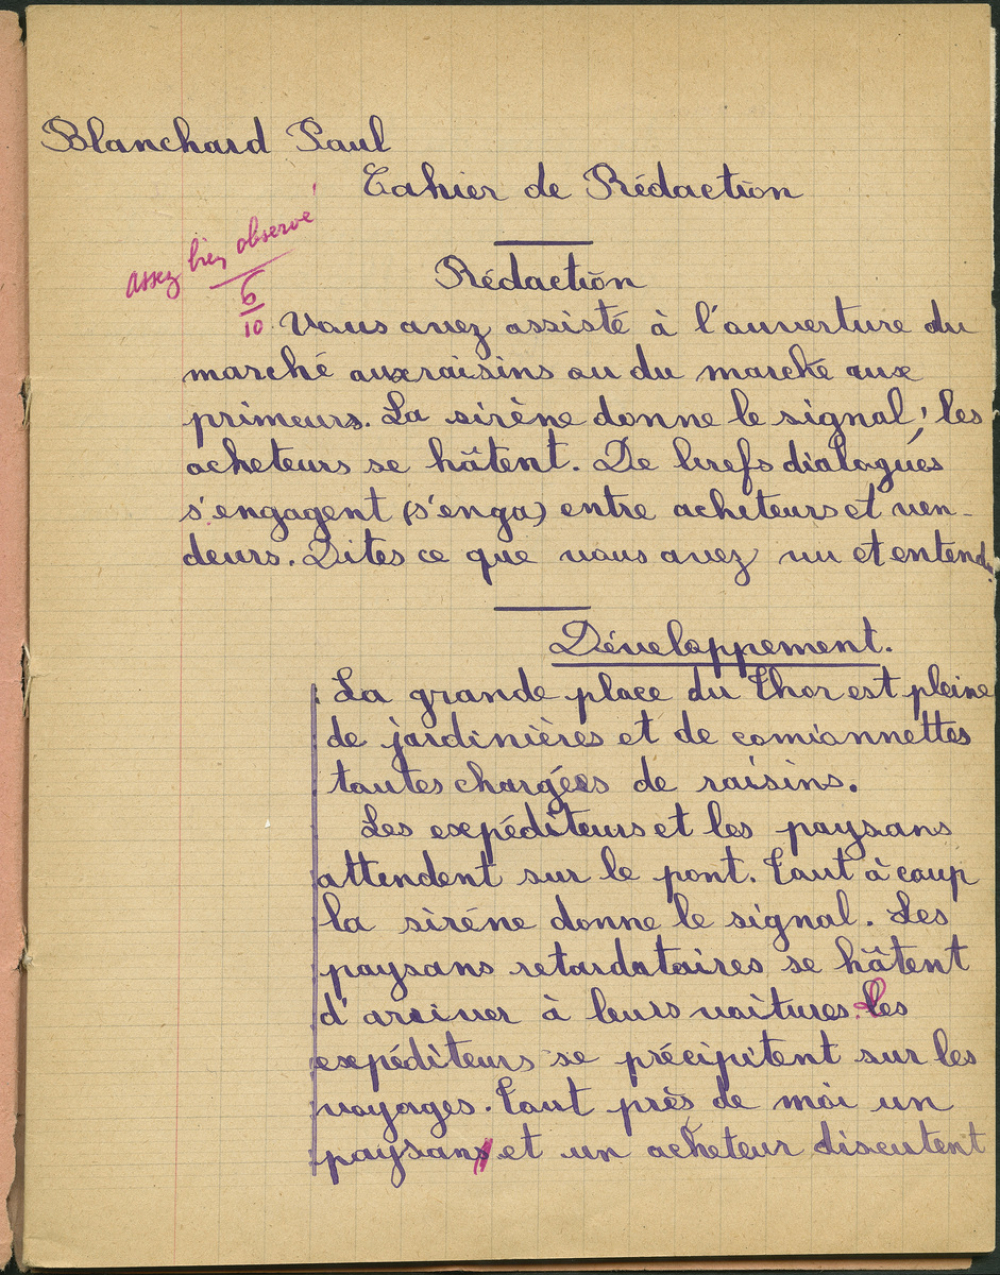 Blanchard Paul
Cahier de Rédaction
assez bien observé
6
10
Rédaction
Vous avez assisté à l'ouverture du
marché aux raisins ou du marché aux
primeurs. La sirène donne le signal, les
acheteurs se hâtent. De brefs dialogues
s'engagent (s'enga) entre acheteurs et ven-
deurs. Dites ce que vous avez vu et entendu.
Développement.
La grande place du Thor est pleine
de jardinières et de camionnettes
toutes chargées de raisins.
Les expéditeurs et les paysans
attendent sur le pont. Tout à coup
la siréne donne le signal. Les
paysans retardataires se hâtent
d'arriver à leurs voitures. Les
expéditeurs se précipitent sur les
voyages. Tout près de moi un
paysan et un acheteur discutent